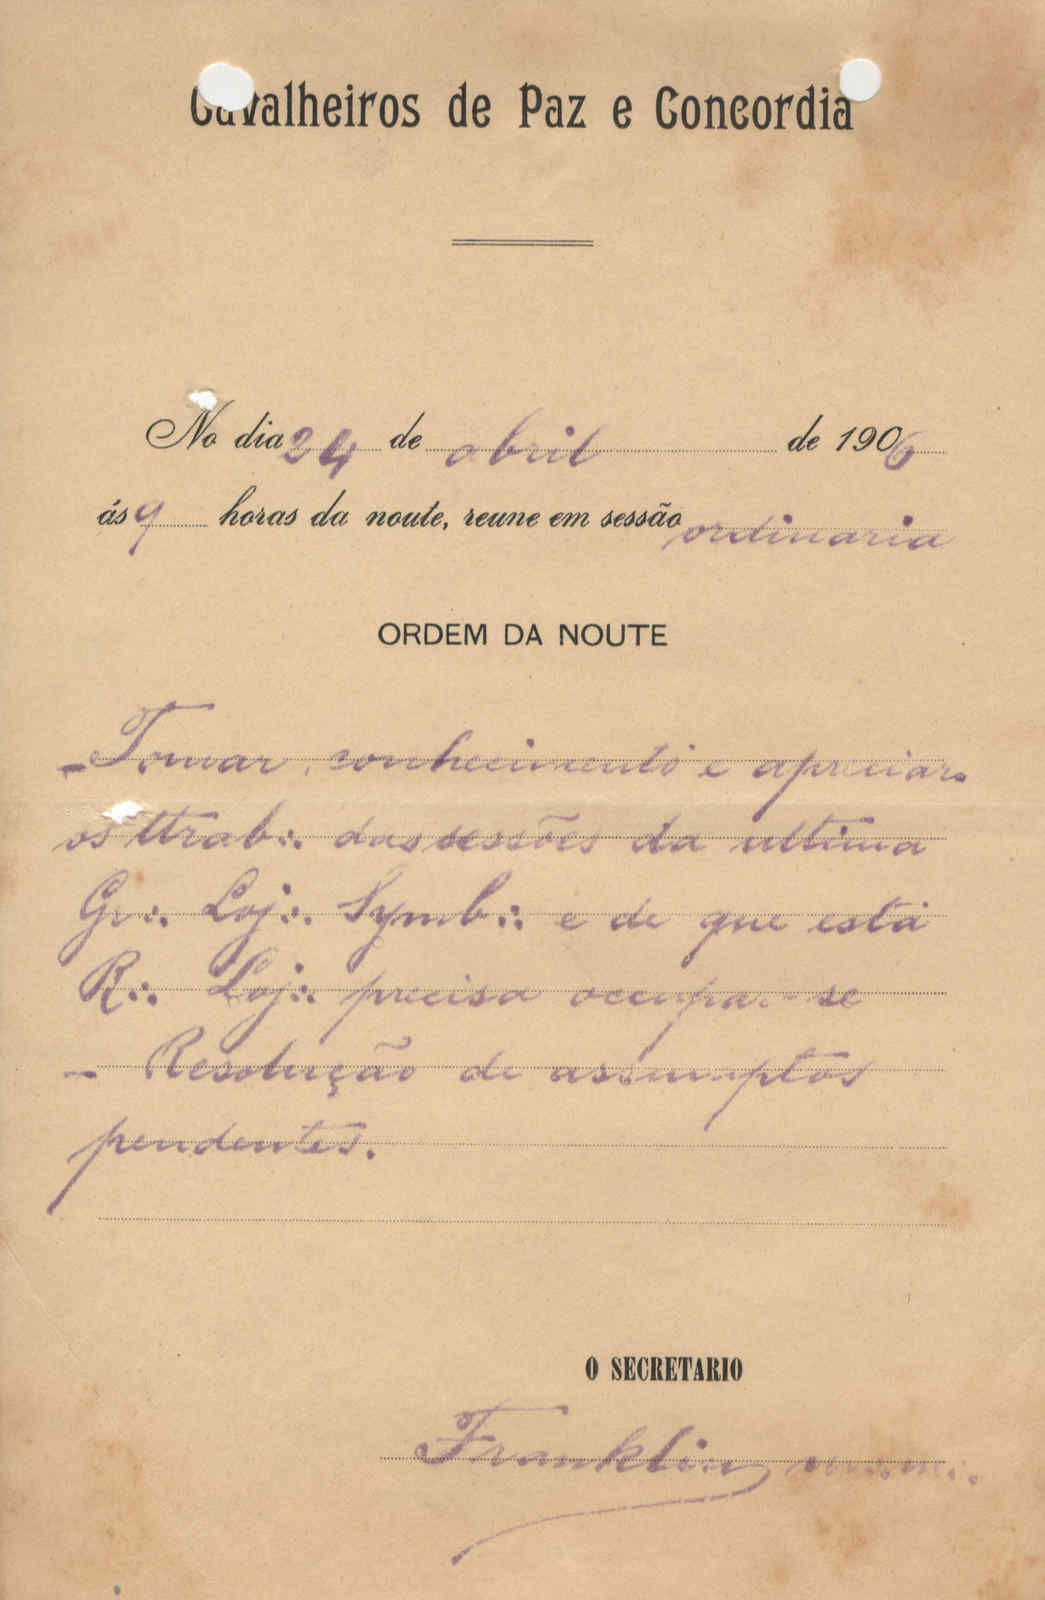 Cavalheiros de Paz e Concordia
No dia 24 de abril de 1906
ás 9 horas da noute, reune em sessão ordinaria
ORDEM DA NOUTE
- Tomar conhecimento e apreciar
os ttrab∴ das sessões da ultima
Gr∴ Loj∴ Symb∴ e de que esta
R∴ Loj∴ precisa occupar-se
- Resolução de assumptos
pendentes.
O SECRETARIO
Franklin